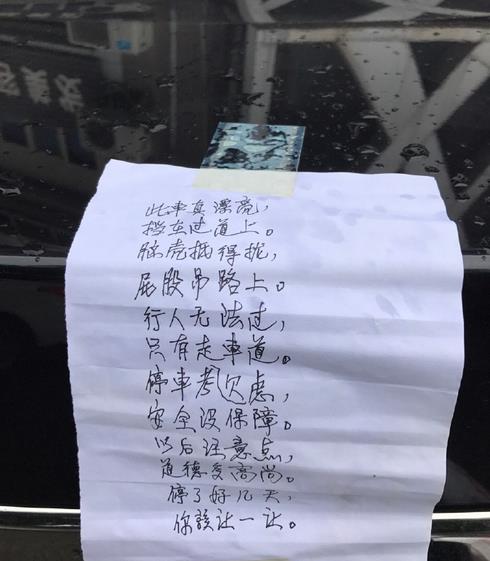 此车真漂亮，
挡在过道上。
脑壳抵得拢，
屁股吊路上。
行人无法过，
只有走車道。
停車考欠虑，
安全没保障。
以后注意点，
道德要高尚。
停了好几天，
你該让一让。